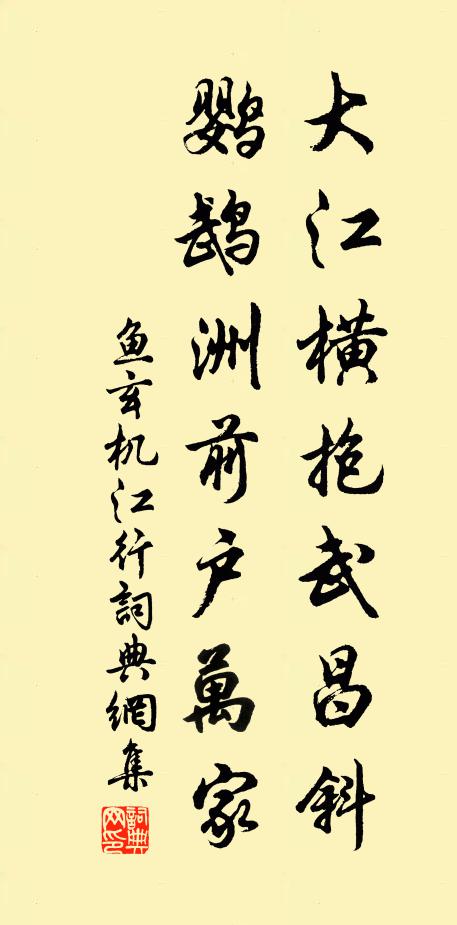 大江橫抱武昌斜
鸚鵡洲前户萬家
魚玄机江行詞典網集
詞典網印